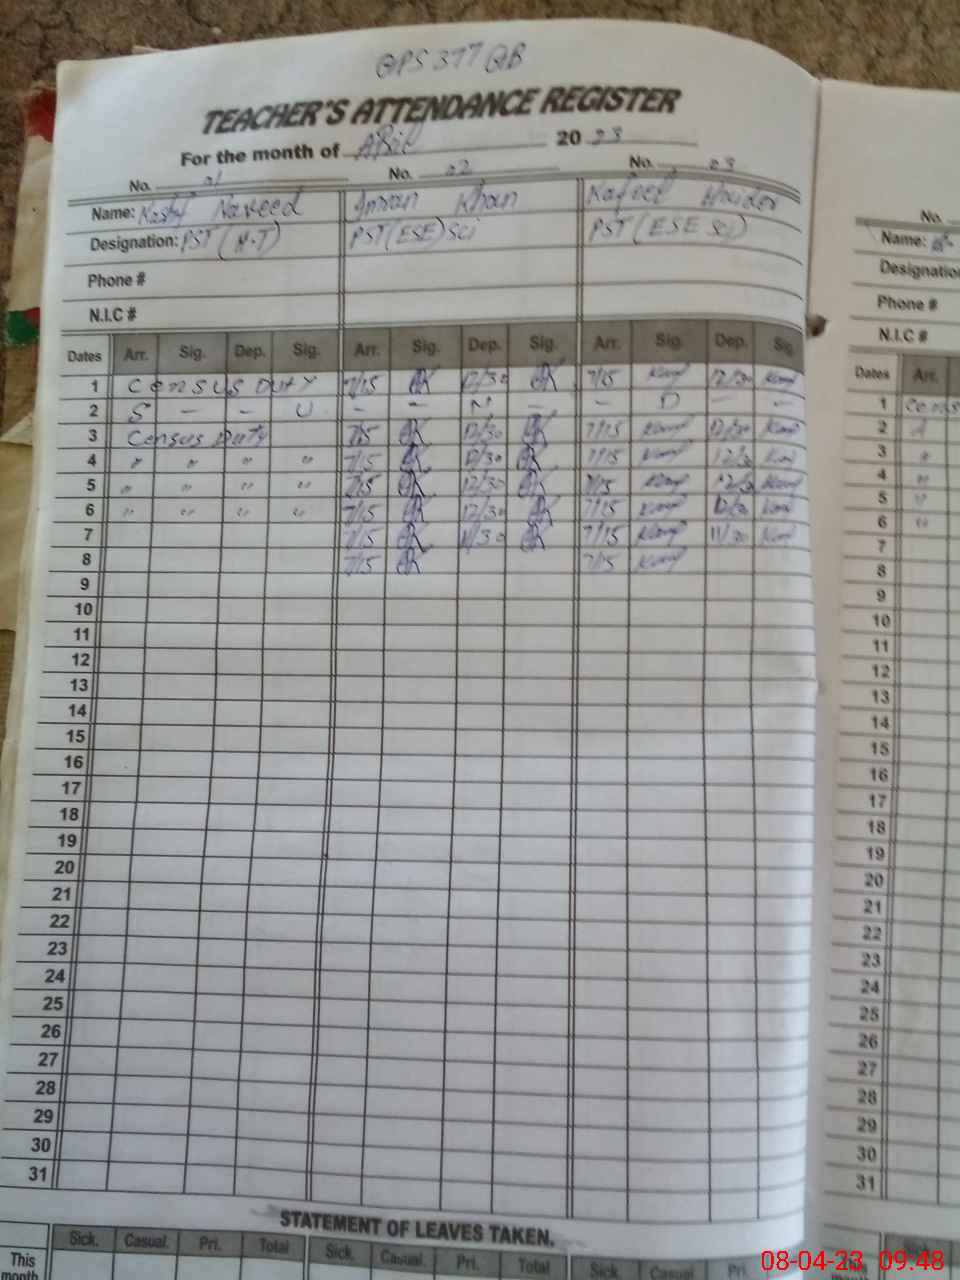 GPS 377 GB
TEACHER'S ATTENDANCE REGISTER
For the month of April 20 23
No. 01 No. 02 No. 03
Name: Kashif Naveed Imran Khan Kafeel Haider
Designation: PST (H.T) PST (ESE) Sci PST (ESE Sci)
Phone #
N.I.C #
Dates Arr. Sig. Dep. Sig. Arr. Sig. Dep. Sig. Arr. Sig. Dep. Sig.
1 Census Duty 7/15 12/30 7/15 12/30
2 S - - U - - N - - D - -
3 Census Duty 7/15 12/30 7/15 12/30
4 " " " " 7/15 12/30 7/15 12/30
5 " " " " 7/15 12/30 7/15 12/30
6 " " " " 7/15 12/30 7/15 12/30
7 7/15 11/30 7/15 11/30
8 7/15 7/15
9
10
11
12
13
14
15
16
17
18
19
20
21
22
23
24
25
26
27
28
29
30
31
STATEMENT OF LEAVES TAKEN.
Sick. Casual. Pri. Total Sick. Casual. Pri. Total Sick. Casual. Pri.
This
month
No.
Name:
Designation
Phone #
N.I.C #
Dates Arr.
1 Cens
2
3 "
4 "
5 "
6 "
7
8
9
10
11
12
13
14
15
16
17
18
19
20
21
22
23
24
25
26
27
28
29
30
31
08-04-23 09:48